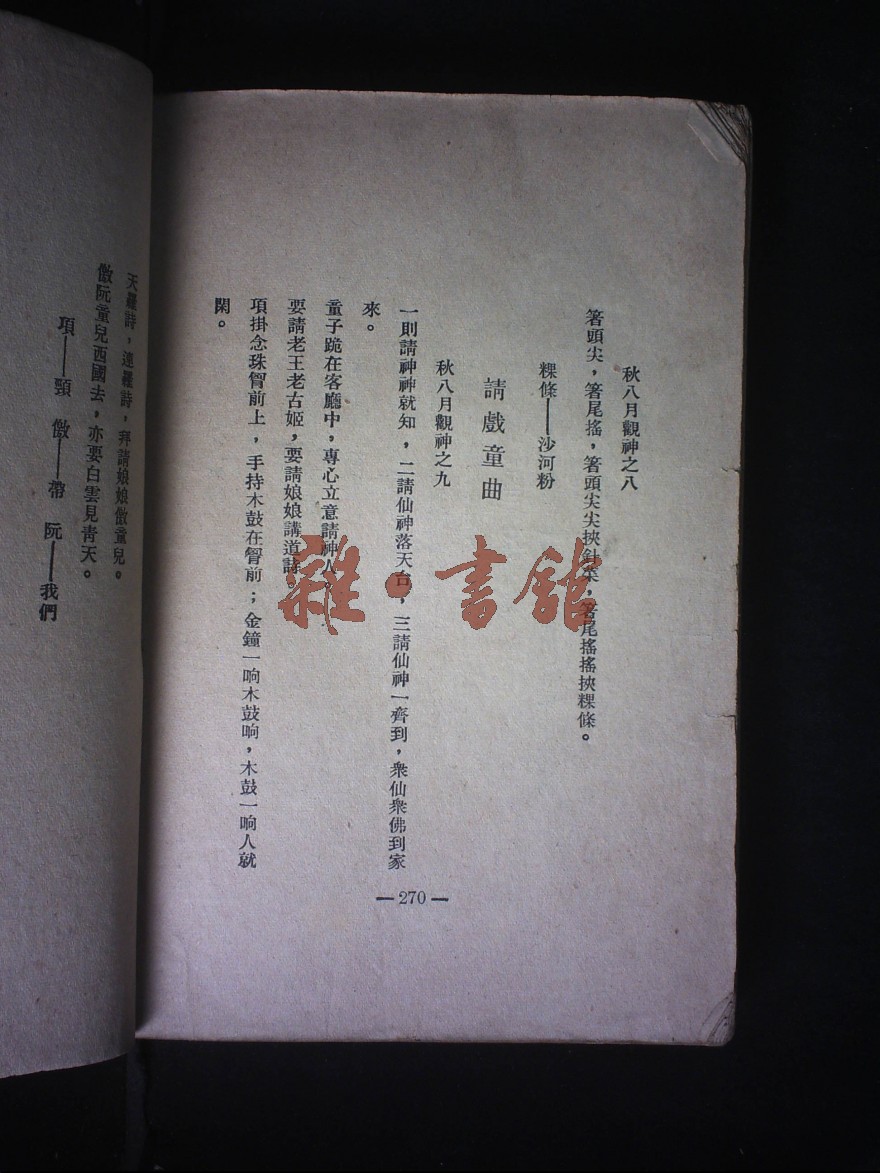 秋八月觀神之八
箸頭尖，箸尾搖，箸頭尖尖挾針菜，箸尾搖搖挾粿條。
粿條——沙河粉
請戲童曲
秋八月觀神之九
一則請神神就知，二請仙神落天台，三請仙神一齊到，衆仙衆佛到家
來。
童子跪在客廳中，專心立意請神人。
要請老王老古姬，要請娘娘講道詩。
項掛念珠胷前上，手持木鼓在胷前；金鐘一响木鼓响，木鼓一响人就
閑。
—270—
天羅詩，連羅詩，拜請娘娘儌童兒。
儌阮童兒西國去，亦要白雲見靑天。
項——頸 儌——帶 阮——我們
雜·書館